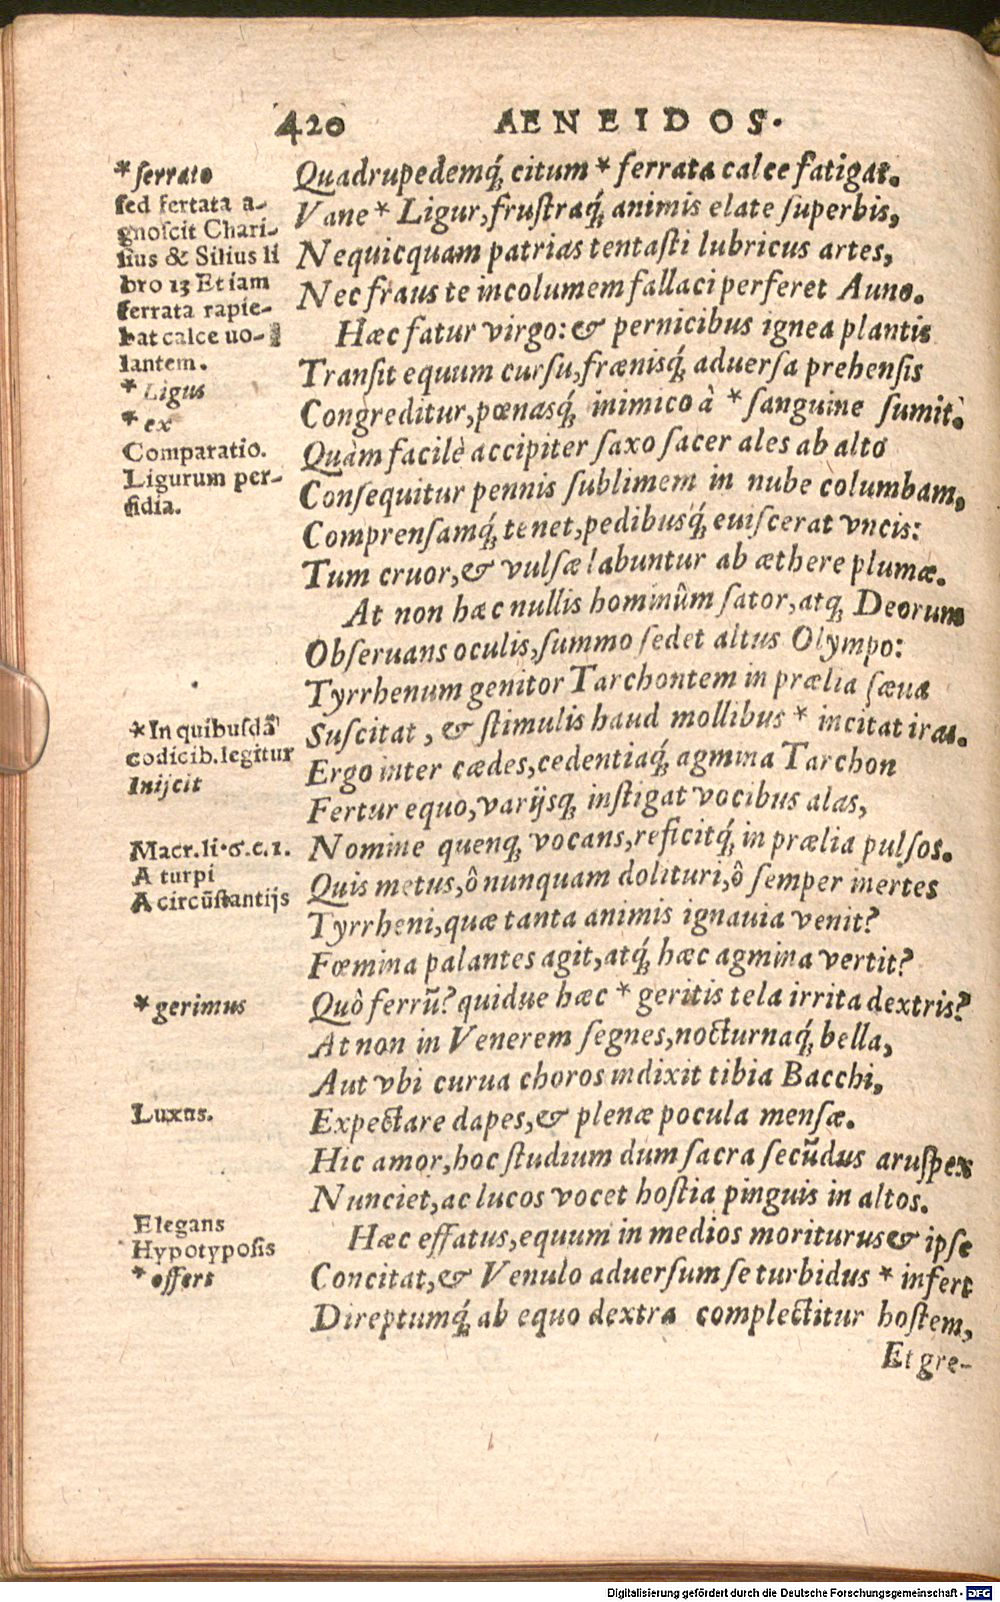 420 AENEIDOS.
* ferrato
sed ferrata a-
gnoscit Chari-
sius & Silius li
bro 13 Etiam
ferrata rapie-
bat calce uo-
lantem.
* Ligus
* ex
Comparatio.
Ligurum per-
fidia.
* In quibusdã
codicib. legitur
Inijcit
Macr. li. 6. c. 1.
A turpi
A circũstantijs
* gerimus
Luxus.
Elegans
Hypotyposis
* offert
Quadrupedemq́; citum * ferrata calce fatigat.
Vane * Ligur, frustraq́; animis elate superbis,
Nequicquam patrias tentasti lubricus artes,
Nec fraus te incolumem fallaci perferet Auno.
Hæc fatur virgo: & pernicibus ignea plantis
Transit equum cursu, frænisq́; aduersa prehensis
Congreditur, pœnasq́; inimico à * sanguine sumit.
Quàm facilè accipiter saxo sacer ales ab alto
Consequitur pennis sublimem in nube columbam,
Comprensamq́; tenet, pedibusq́; euiscerat vncis:
Tum cruor, & vulsæ labuntur ab æthere plumæ.
At non hæc nullis hominûm sator, atq; Deorum
Obseruans oculis, summo sedet altus Olympo:
Tyrrhenum genitor Tarchontem in prælia sæua
Suscitat, & stimulis haud mollibus * incitat iras.
Ergo inter cædes, cedentiaq́; agmina Tarchon
Fertur equo, varijsq; instigat vocibus alas,
Nomine quenq; vocans, reficitq́; in prælia pulsos.
Quis metus, ô nunquam dolituri, ô semper inertes
Tyrrheni, quæ tanta animis ignauia venit?
Fœmina palantes agit, atq́; hæc agmina vertit?
Quò ferrũ? quidue hæc * geritis tela irrita dextris?
At non in Venerem segnes, nocturnaq́; bella,
Aut vbi curua choros indixit tibia Bacchi,
Expectare dapes, & plenæ pocula mensæ.
Hic amor, hoc studium dum sacra secũdus aruspex
Nunciet, ac lucos vocet hostia pinguis in altos.
Hæc effatus, equum in medios moriturus & ipse
Concitat, & Venulo aduersum se turbidus * infert
Direptumq́; ab equo dextra complectitur hostem,
Et gre-
Digitalisierung gefördert durch die Deutsche Forschungsgemeinschaft - DFG